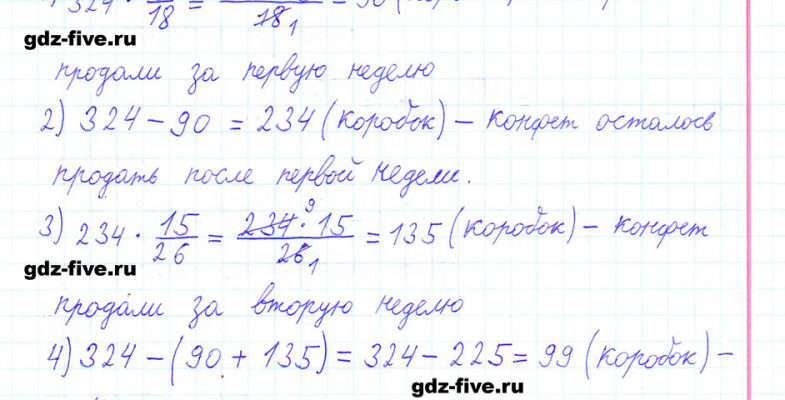 324 · /18 = /18 1 = 90
gdz-five.ru
продали за первую неделю
2) 324 – 90 = 234 (коробок) – конфет осталось
продать после первой недели.
3) 234 · 15/26 = 234 9 · 15/26 1 = 135 (коробок) – конфет
gdz-five.ru
продали за вторую неделю
4) 324 – (90 + 135) = 324 – 225 = 99 (коробок) –
gdz-five.ru